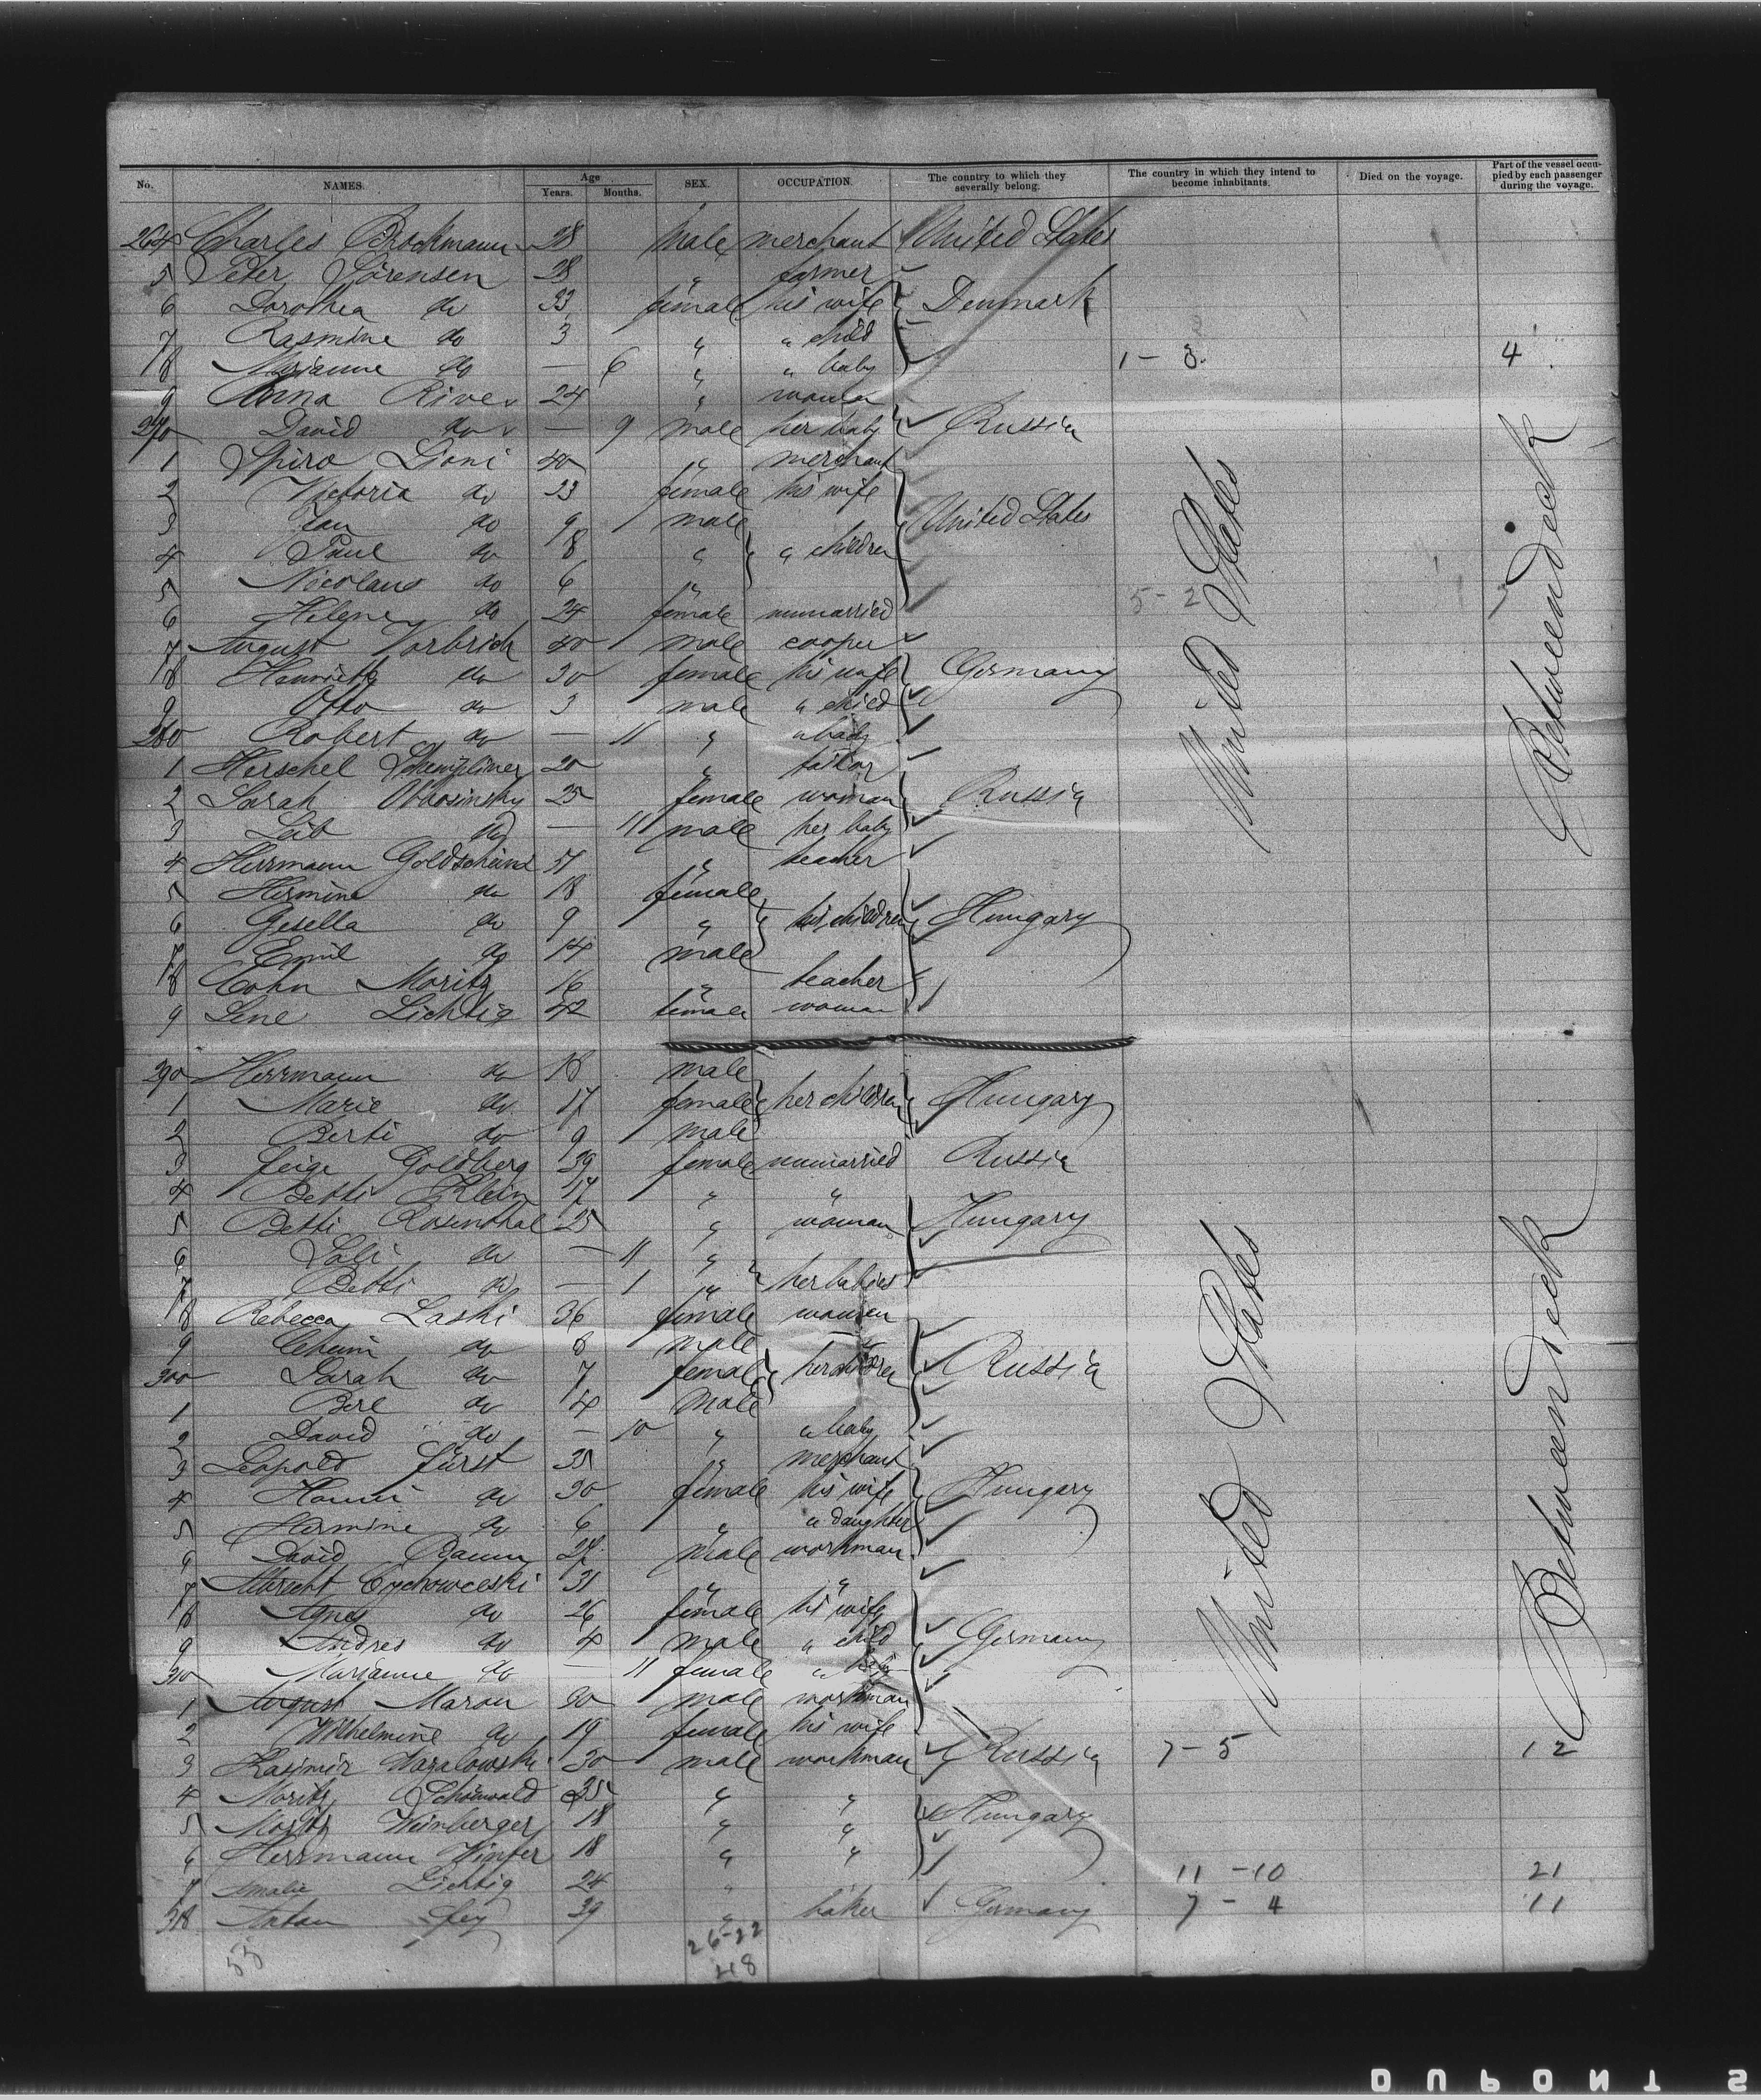 No. NAMES. Age Years. Months. SEX. OCCUPATION. The country to which they severally belong. The country in which they intend to become inhabitants. Died on the voyage. Part of the vessel occupied by each passenger during the voyage.
264 Charles Brockmann 28 male merchant United States
5 Peter Sörensen 28 " farmer
6 Dorothea do 33 female his wife Denmark
7 Rasmine do 3 " " child
8 Marianne do — 6 " " baby 1 - 3. 4
9 Anna River 24 " woman
270 David do — 9 male her baby Russia
1 Spiro Lioni 40 " merchant
2 Victoria do 23 female his wife
3 Jan do 9 male United States
4 Paul do 8 " " children
5 Nicolaus do 6 " 5 - 2
6 Helene do 24 female unmarried
7 August Vorbrich 40 male cooper
8 Henriette do 30 female his wife Germany
9 Otto do 3 male " child
280 Robert do — 11 " " baby
1 Herschel 20 " tailor
2 Sarah 25 female woman Russia
3 Leib do — 11 male her baby
4 Herrmann 51 " teacher
5 Hermine do 18 female
6 Gisella do 9 " his children Hungary
7 Emil do 14 male
8 Cohn Moritz 16 " teacher
9 Lene Lichtig 42 female woman
United States
Betweendeck
290 Herrmann do 18 male
1 Marie do 17 female her children Hungary
2 Berti do 9 male
3 Feige Goldberg 39 female unmarried Russia
4 Betti Klein 17 " "
5 Betti Rosenthal 25 " woman Hungary
6 Sali do — 11 "
7 Betti do — 1 " her babies
8 Rebecca Laski 36 female woman
9 Cheim do 8 male
300 Sarah do 7 female her children Russia
1 Berl do 4 male
2 David do — 10 " " baby
3 Leopold Fürst 35 " merchant
4 Hanni do 30 female his wife Hungary
5 Hermine do 6 " " daughter
6 David Baum 24 male workman
7 Albrecht 31 " "
8 Agnes do 26 female his wife
9 Andres do 4 male " child Germany
310 Marianne do — 11 female " baby
1 August Maron 30 male workman
2 Wilhelmine do 19 female his wife
3 Kasimir 30 male workman Russia 7 - 5 12
4 Moritz Schönwald 35 " "
5 Moritz Weinberger 18 " " Hungary
6 Herrmann Winter 18 " "
7 Amalie Lichtig 24 " 11 - 10 21
318 Anton Fey 39 " baker Germany 7 - 4 11
United States
Betweendeck
53 26-22
48
DUPONT S